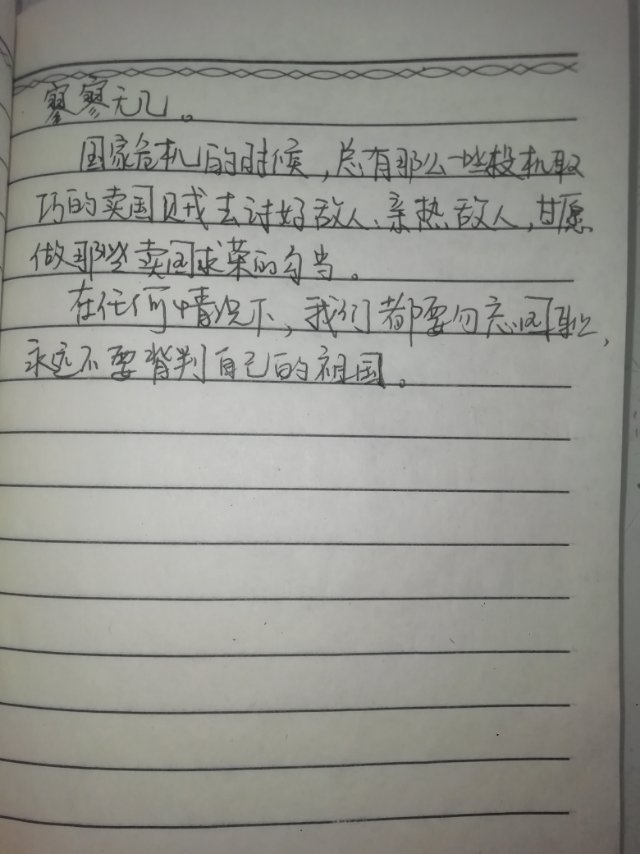 寥寥无几。
国家危机的时候，总有那么一些投机取
巧的卖国贼去讨好敌人、亲热敌人，甘愿
做那些卖国求荣的勾当。
在任何情况下，我们都要勿忘国耻，
永远不要背判自己的祖国。